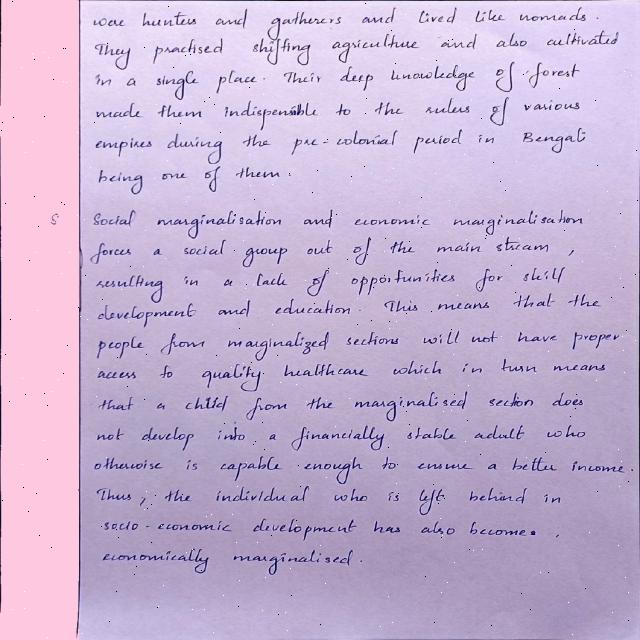 were hunters and gatherers and lived like nomads.
They practised shifting agriculture and also cultivated
in a single place. Their deep knowledge of forest
made them indispensible to the rulers of various
empires during the pre-colonial period in Bengali
being one of them.
5 Social marginalisation and economic marginalisation
forces a social group out of the main stream,
resulting in a lack of opportunities for skill
development and education. This means that the
people from marginalized sections will not have proper
access to quality healthcare which in turn means
that a child from the marginalised section does
not develop into a financially stable adult who
otherwise is capable enough to ensure a better income.
Thus, the individual who is left behind in
socio-economic development has also become.
economically marginalised.